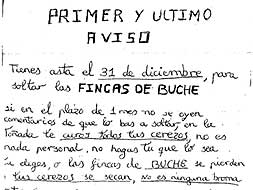 PRIMER Y ULTIMO
AVISO
Tienes asta el 31 de diciembre, para
soltar las FINCAS DE BUCHE
si en el plazo de 1 mes no se oyen
comentarios de que lo bas a soltar, en la
te curo todos tus cerezos, no es
nada personal, no hagas tu que lo sea
digo, o las fincas de BUCHE se pierden
tus cerezos se secan, No es ninguna broma